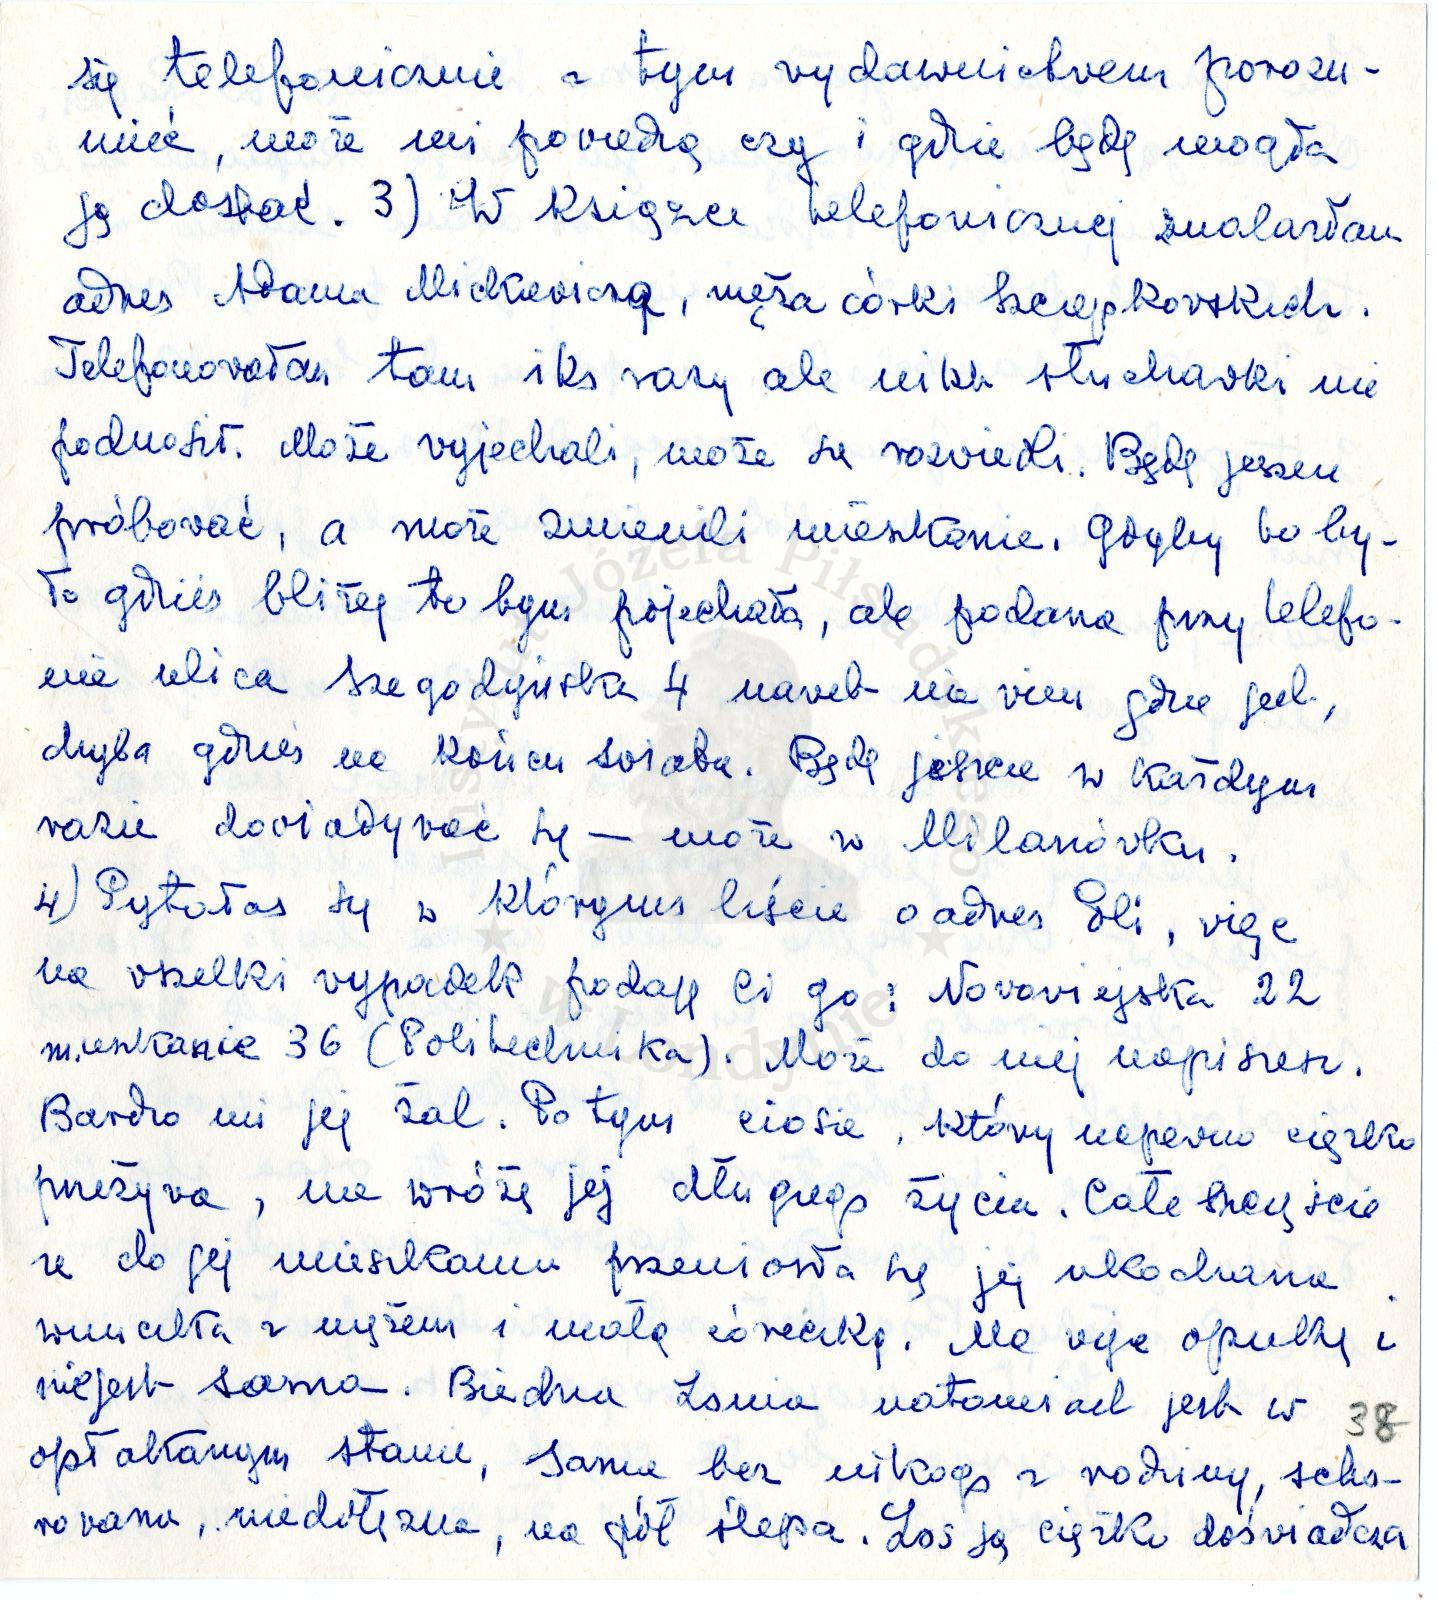 się telefonicznie z tym wydawnictwem porozu-
mieć, może mi powiedzą czy i gdzie będę mogła
ją dostać. 3) W książce telefonicznej znalazłam
adres Adama Mickiewicza, męża córki Szczepkowskich.
Telefonowałam tam iks razy ale nikt słuchawki nie
podnosił. Może wyjechali, może się rozwiedli. Będę jeszcze
próbować, a może zmienili mieszkanie. Gdyby to by-
ło gdzieś bliżej to bym pojechała, ale podana przy telefo-
nie ulica Szegedyńska 4 nawet nie wiem gdzie jest,
chyba gdzieś na końcu świata. Będę jeszcze w każdym
razie dowiadywać się — może w Milanówku.
4) Pytałaś się w którymś liście o adres Eli, więc
na wszelki wypadek podaję Ci go: Nowowiejska 22
mieszkanie 36 (Politechnika). Może do niej napiszesz.
Bardzo mi jej żal. Po tym ciosie, który napewno ciężko
przeżywa, nie wróżę jej długiego życia. Całe szczęście
że do jej mieszkania przeniosła się jej ukochana
wnuczka z mężem i małą córeczką. Ma więc opiekę i
nie jest sama. Biedna natomiast jest w
opłakanym stanie, sama bez nikogo z rodziny, scho-
rowana, niedołężna, na pół ślepa. Los ją ciężko doświadcza
38
Instytut Józefa Piłsudskiego
w Londynie